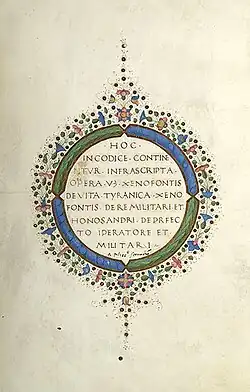 HOC
IN CODICE · CONTINE
NTVR · INFRASCRIPTA ·
OPERA · V3 · XENOFONTIS
DE VITA · TYRANICA · XENO
FONTIS · DE RE MILITARI · ET
HONOSANDRI · DE PRFEC
TO IPERATORE ET
MILITARI